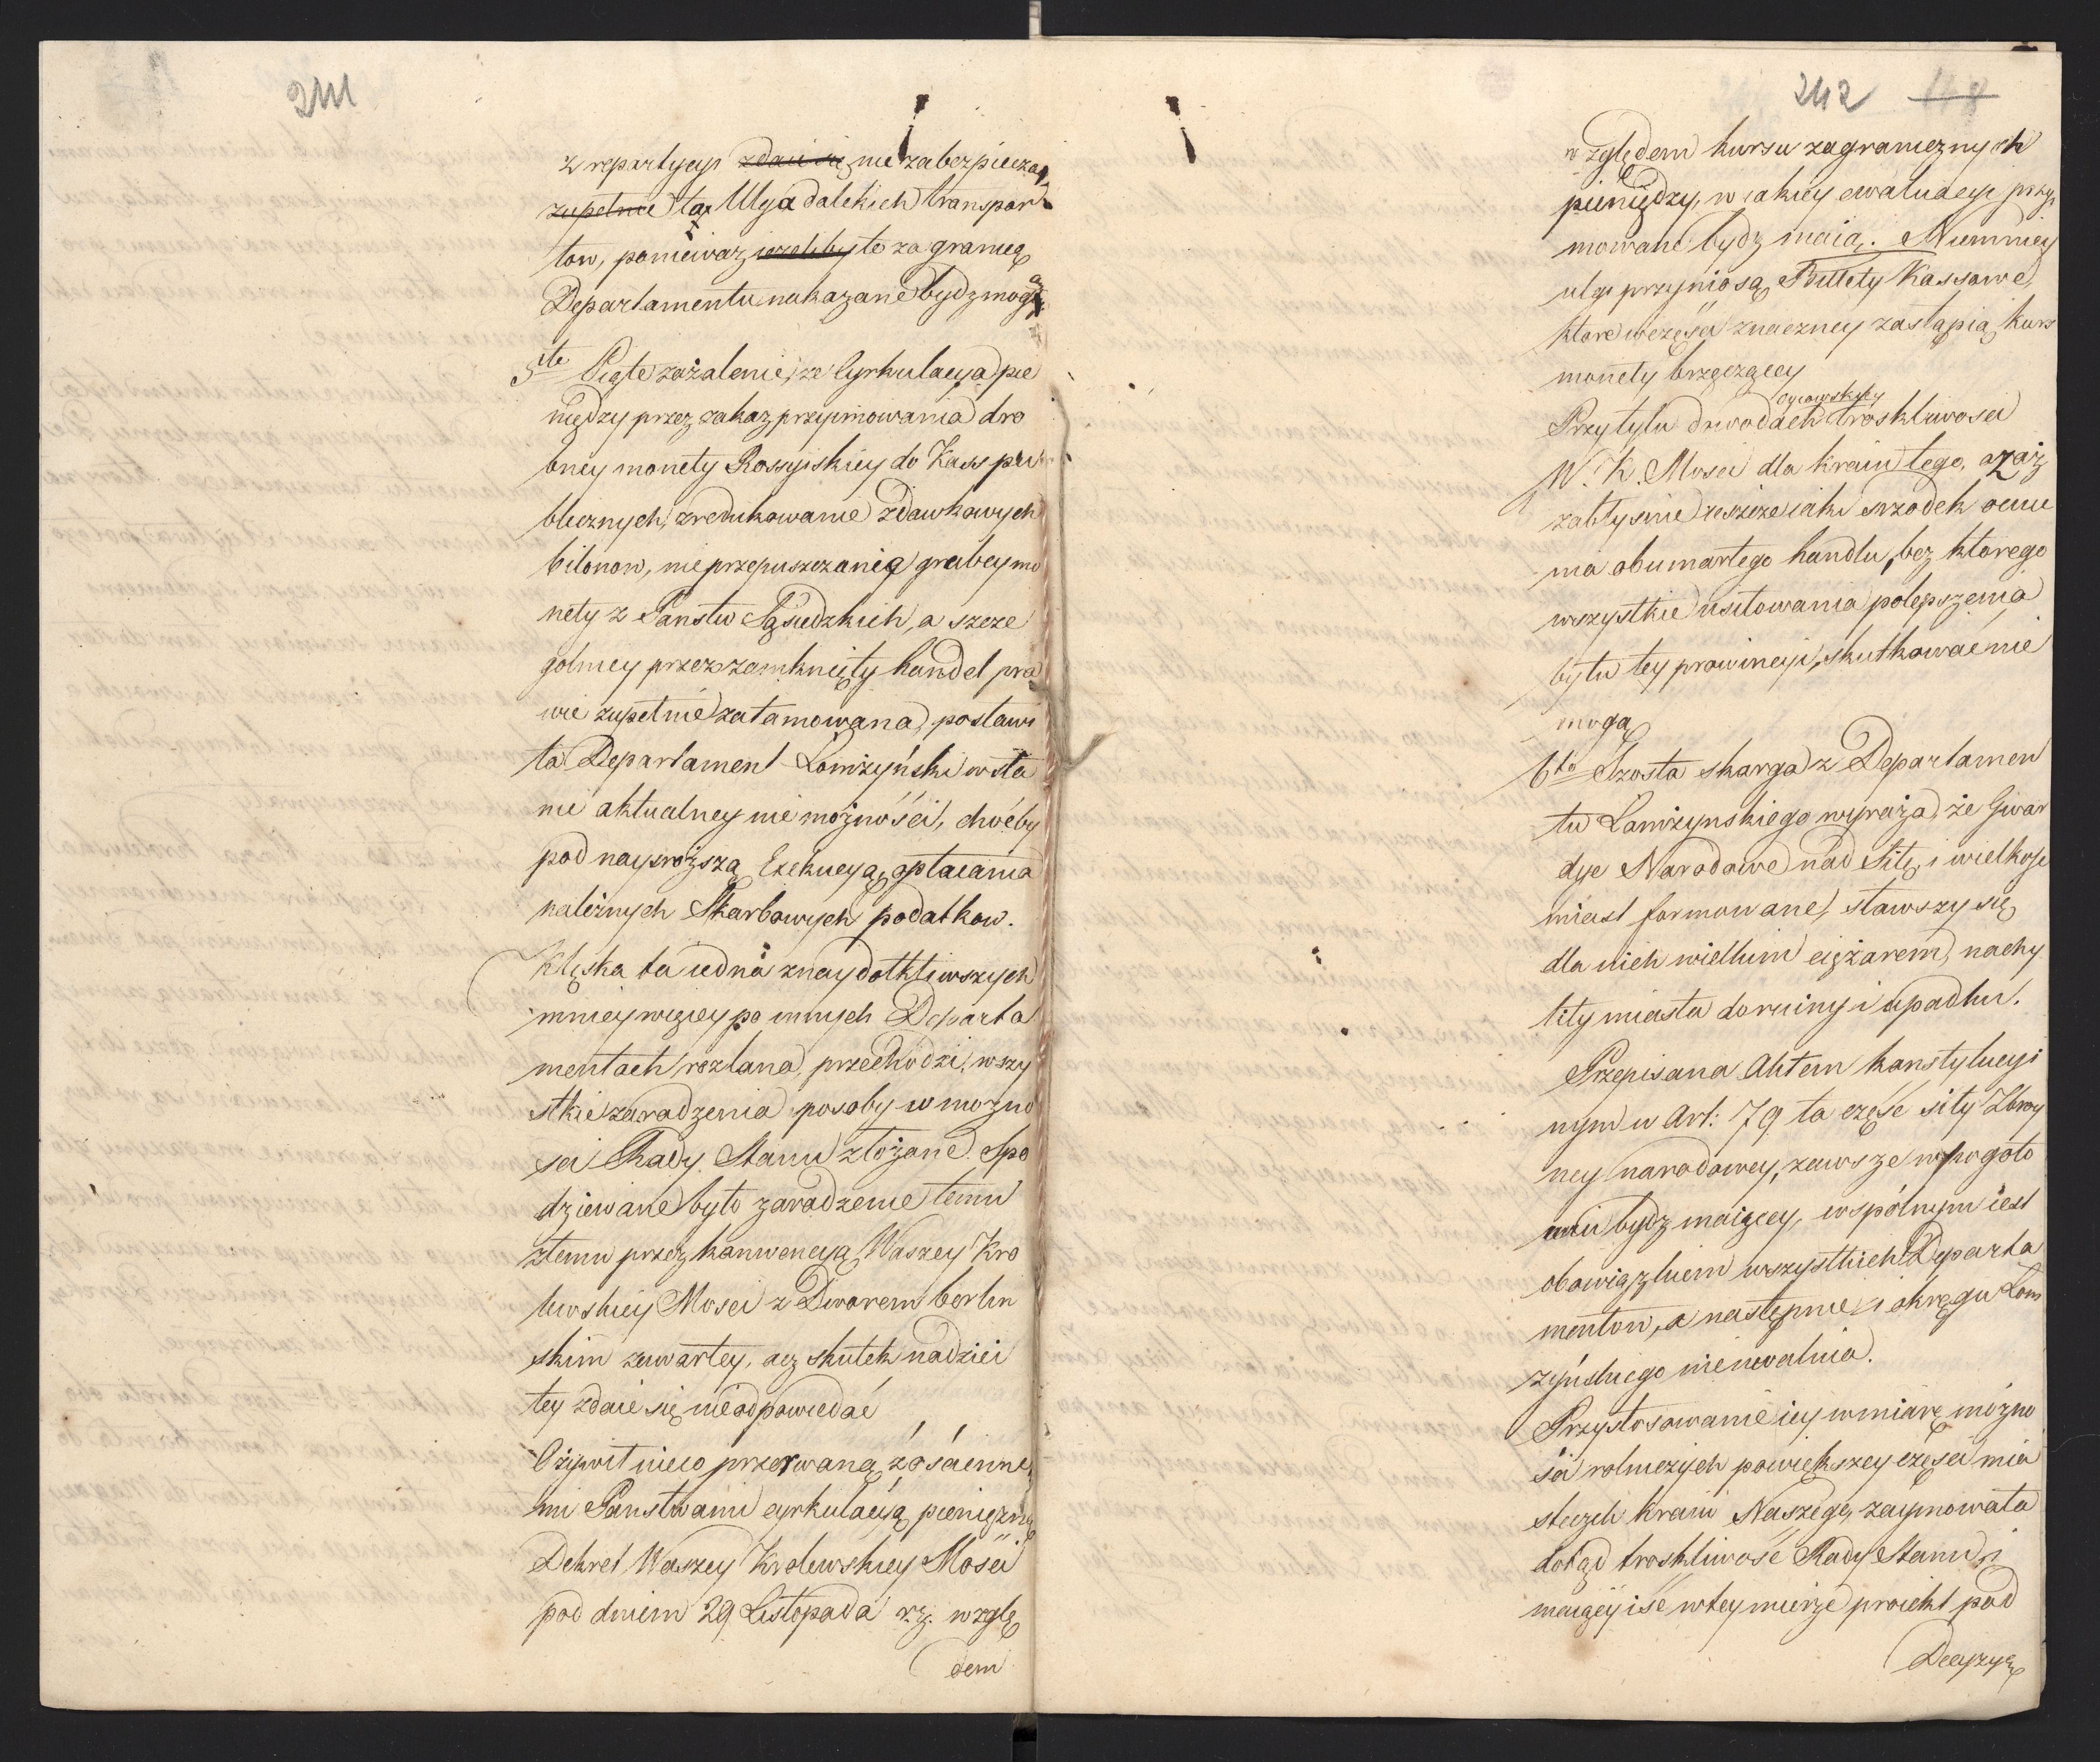 241
z repartycyi zdaie się nie zabezpiecza
zupełnie ta Ulga dalekich transpor
tow, ponieważ iezeliby te za granicę
Departamentu nakazane bydz mogą
5te Piąte zażalenie, ze Cyrkulacya pie
niędzy przez zakaz przyimowania dro
bney monety Rossyiskiey do Kass pu
blicznych, zredukowanie zdawkowych
bilonow, nieprzepuszczanie grubey mo
nety z Panstw Sąsiedzkich, a szcze
golniey przez zamknięty handel pra
wie zupełnie zatamowana, postawi
ła Departament Łomżyński w sta
nie aktualney niemożności, choćby
pod naysroższą Exekucyą opłacania
należnych Skarbowych podatkow.
Klęska ta iedna z naydotkliwszych
mniey więcey po innych Departa
mentach rozlana, przechodzi, wszy
stkie zaradzenia sposoby w mozno
sci Rady Stanu złożone. Spo
dziewane było zaradzenie temu
złemu przez konwencyą Waszey Kro
lewskiey Mosci z Dworem berlin
skim zawartey, acz skutek nadziei
tey zdaie się nieodpowiedać
Ożywił nieco przerwaną z ościenne
mi Panstwami cyrkulacyą pieniężną
Dekret Waszey Krolewskiey Mości
pod dniem 29 Listopada r.z. wzglę
dem
242 118
względem kursu zagranicznych
pieniędzy, w iakiey ewaluacyi przy
mowane bydz maią. Niemniey
ulgi przyniosą Billety Kassowe,
ktore w części znaczney zastąpią kurs
monety brzęczącey
Przy tylu dowodach Oycowskiey troskliwosci
W. K. Mosci dla kraiu tego, azaż
zabłysnie ieszcze iaki srzodek ocuce
nia obumarłego handlu, bez ktorego
wszystkie usiłowania polepszenia
bytu tey prowincyi, skutkować nie
mogą
6to Szosta skarga z Departamen
tu Łomżynskiego wyraża, że Gwar
dye Narodowe nad Siłę i wielkość
miast formowane, stawszy się
dla nich wielkim ciężarem, nachy
liły miasta do ruiny i upadku.
Przepisana Aktem konstytucyi
nym w Art: 79 ta część siły Zbroy
ney narodowey, zawsze w pogoto
wiu bydz maiącey, wspólnym iest
obowiązkiem wszystkich Departa
mentow, a następnie i okręgu Łom
żyńskiego nieuwalnia.
Przystosowanie iey w miarę możno
ści rolniczych powiększey części mia
steczek kraiu Naszego, zaymowała
dotąd troskliwość Rady Stanu i
maiący iść w tey mierze proiekt pod
Decyzyą